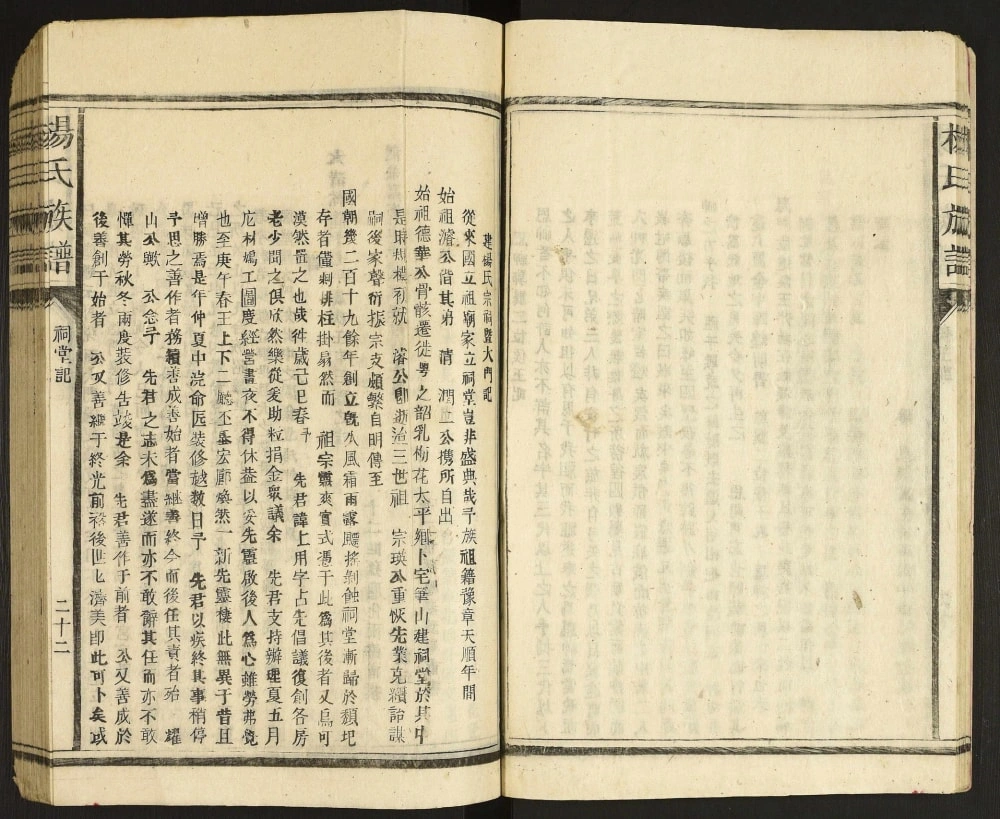 楊氏族譜
建楊氏宗祠暨大門記
從來國立祖廟家立祠堂豈非盛典哉予族祖籍豫章天順年間
始祖濬公偕其弟 清 潤二公攜所自出
始祖德華公骨骸遷徙粵之韶乳梅花太平鄉卜宅筆山建祠堂於其中
是時規模初就 濬公即逝洽三世祖 宗瑛公重恢先業克纘詒謀
嗣後家聲衍振宗支頗繁自明傳至
國朝幾二百十九餘年創立旣久風霜雨露飄搖剝蝕祠堂漸歸於頹圯
存者僅剩排柱掛易然而 祖宗靈爽實式憑于此爲其後者又烏可
漠然置之也哉歲己巳春予 先君諱上用字占先倡議復創各房
老少聞之俱欣然樂從爰助粒捐金衆議余 先君支持辦理夏五月
庀材鳩工圖度經營晝夜不得休葢以妥先靈啟後人爲心雖勞弗覺
也至庚午春王上下二廳丕基宏廊煥然一新先靈棲此無異于昔且
增勝焉是年仲夏中浣命匠裝修越數日予 先君以疾終其事稍停
予思之善作者務須善成善始者當繼善終今而後任其責者殆 耀
山公歟 公念予 先君之志未爲盡遂而亦不敢辭其任而亦不敢
憚其勞秋冬兩度裝修告竣是余 先君善作于前者 公又善成於
後善創于始者 公又善繼于終光前裕後世世濟美即此可卜矣或
祠堂記
二十二